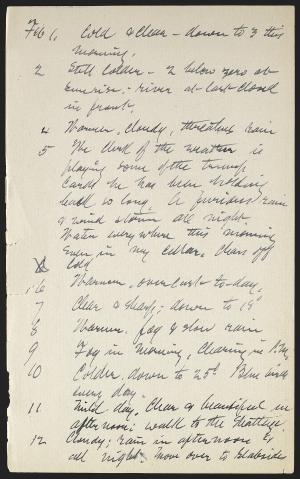 Feb 1, Cold & Clear - down to 3 this
morning.
2 Still Colder - 2 below zero at
Sunrise; river at last closed
in front.
4 Warmer, Cloudy, threatens rain
5 The Clerk of the weather is
playing some of the trump
cards he has been holding
back so long. A furious rain
& wind storm all night.
Water everywhere this morning
Even in my cellar. Clears off
Cold
6 Warmer, overcast to-day,
7 Clear & sharp; down to 18°
8 Warmer. fog & slow rain
9 Fog in morning, Clearing in P.M.
10 Colder, down to 25°. Blue birds
every day.
11 Mild day, Clear & beautiful in
afternoon; walk to the
12 Cloudy; rain in afternoon &
all night. Move over to Slabsides